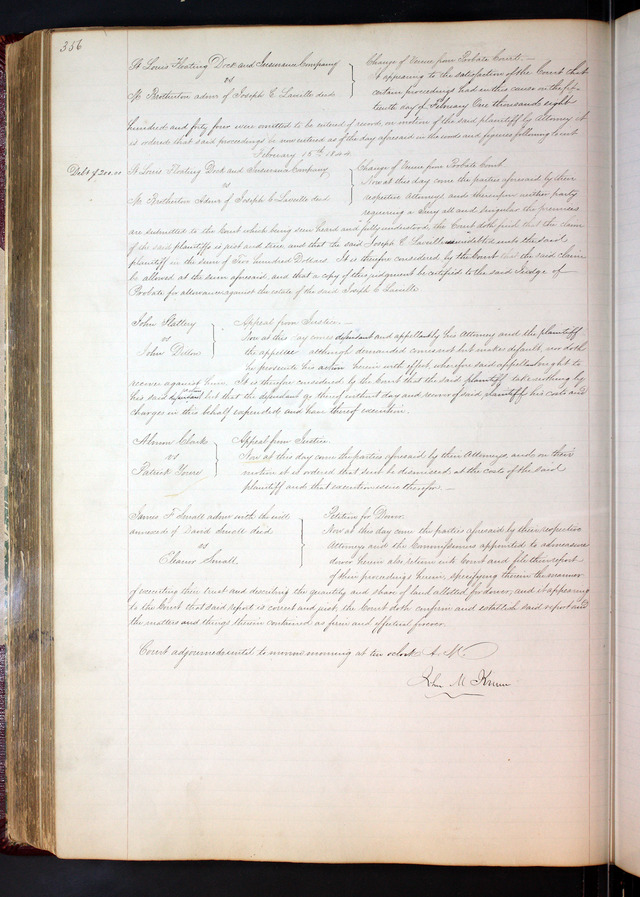 356
St Louis Floating Dock and Insurance Company
vs
M. Brotherton admr of Joseph C Laveille decd
Change of Venue from Probate Court. —
It appearing to the satisfaction of the Court that
certain proceedings had in this cause on the fif-
teenth day of February One thousand eight
hundred and forty four were omitted to be entered of record, on motion of the said plaintiff by Attorney it
is ordered that said proceedings be now entered as of the day aforesaid in the words and figures following to wit
February 15th 1844
Debt $200.00
St Louis Floating Dock and Insurance Company
vs
M. Brotherton Admr of Joseph C Laveille decd
Change of Venue from Probate Court
Now at this day come the parties aforesaid by their
respective Attorneys and thereupon neither party
requiring a Jury all and singular the premises
are submitted to the Court which being seen heard and fully understood, the Court doth find that the claim
of the said plaintiffs is just and true and that the said Joseph C Laveille was indebted unto the said
plaintiff in the sum of Two hundred Dollars. It is therefore considered by the Court that the said claim
be allowed at the sum aforesaid, and that a copy of this judgment be certified to the said Judge of
Probate for allowance against the estate of the said Joseph C Laveille
John Slattery
vs
John Dillon
Appeal from Justice —
Now at this day comes defendant and appellant by his Attorney and the plaintiff
the appellee although demanded comes not but makes default, nor doth
he prosecute his action herein with effect, wherefore said appellant ought to
recover against him. It is therefore considered by the Court that the said plaintiff take nothing by
his said action but that the defendant go thereof without day and recover of said plaintiff his costs and
charges in this behalf expended and have thereof execution.
Clark
vs
Patrick
Appeal from Justice
Now at this day come the parties aforesaid by their Attorneys, and on their
motion it is ordered that suit be dismissed at the costs of the said
plaintiff and that execution issue therefor. —
James F Small admr with the will
annexed of David Small decd
vs
Eleanor Small.
Petition for Dower
Now at this day come the parties aforesaid by their respective
Attorneys and the Commissioners appointed to admeasure
dower herein also return into Court and file their report
of their proceedings herein, specifying therein the manner
of executing their trust and describing the quantity and share of land allotted for dower, and it appearing
to the Court that said report is correct and just, the Court doth confirm and establish said report and
the matters and things therein contained as firm and effectual forever.
Court adjourned until to morrow morning at ten o'clock A. M.
John M Krum